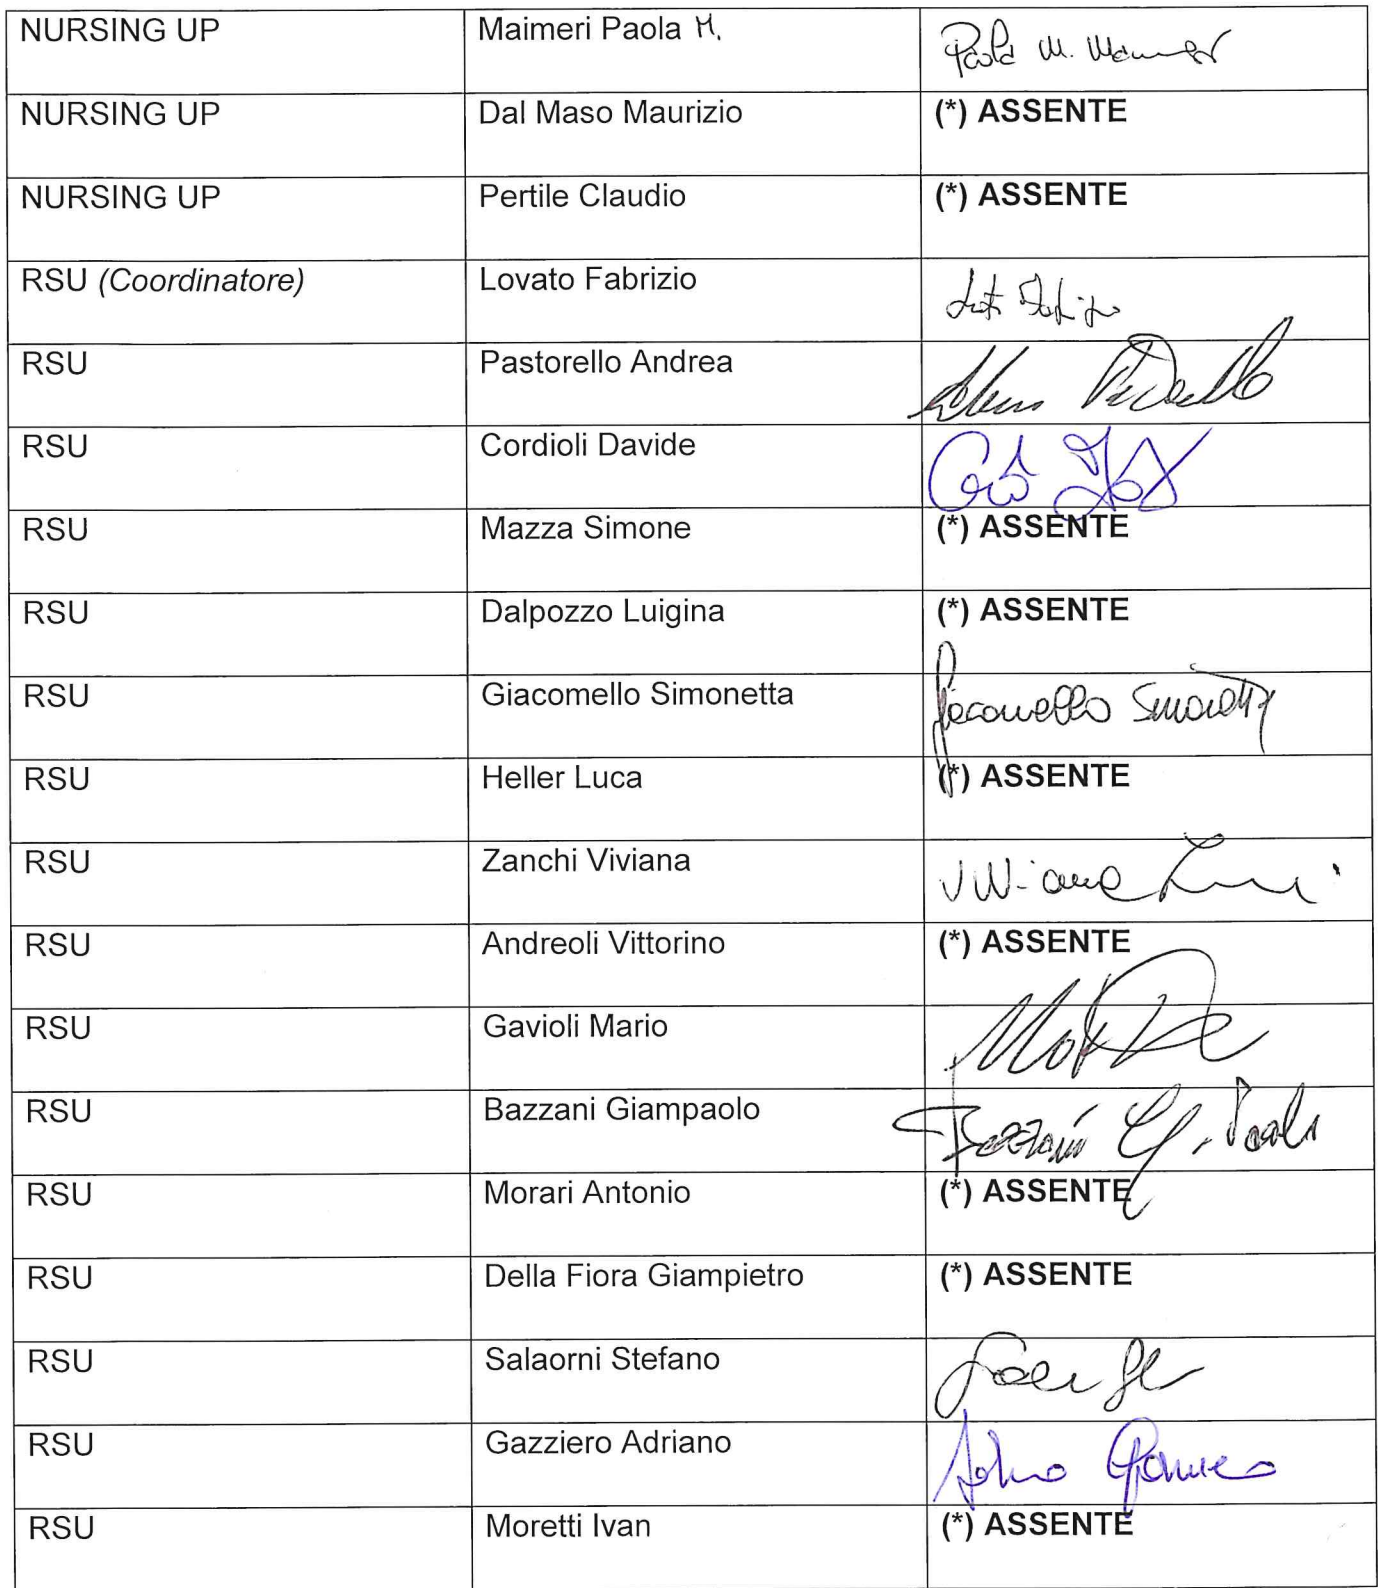 NURSING UP Maimeri Paola M. Paola M. Maimeri
NURSING UP Dal Maso Maurizio (*) ASSENTE
NURSING UP Pertile Claudio (*) ASSENTE
RSU (Coordinatore) Lovato Fabrizio
RSU Pastorello Andrea
RSU Cordioli Davide
RSU Mazza Simone (*) ASSENTE
RSU Dalpozzo Luigina (*) ASSENTE
RSU Giacomello Simonetta Giacomello Simonetta
RSU Heller Luca (*) ASSENTE
RSU Zanchi Viviana Viviana
RSU Andreoli Vittorino (*) ASSENTE
RSU Gavioli Mario
RSU Bazzani Giampaolo Bazzani G. Paolo
RSU Morari Antonio (*) ASSENTE
RSU Della Fiora Giampietro (*) ASSENTE
RSU Salaorni Stefano
RSU Gazziero Adriano
RSU Moretti Ivan (*) ASSENTE